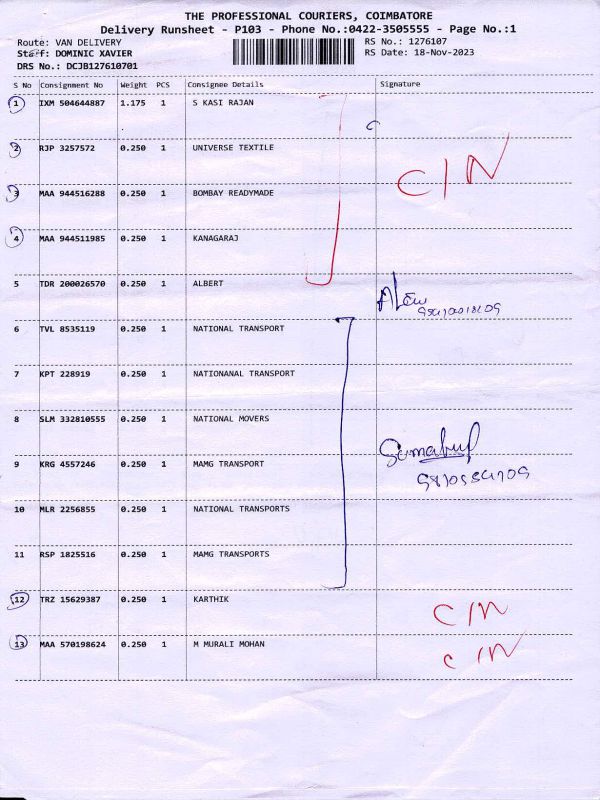 THE PROFESSIONAL COURIERS, COIMBATORE
Delivery Runsheet - P103 - Phone No.:0422-3505555 - Page No.:1
Route: VAN DELIVERY RS No.: 1276107
Staff: DOMINIC XAVIER RS Date: 18-Nov-2023
DRS No.: DCJB127610701
S No Consignment No Weight PCS Consignee Details Signature
1 IXM 504644887 1.175 1 S KASI RAJAN
2 RJP 3257572 0.250 1 UNIVERSE TEXTILE
C/N
3 MAA 944516288 0.250 1 BOMBAY READYMADE
4 MAA 944511985 0.250 1 KANAGARAJ
5 TDR 200026570 0.250 1 ALBERT
6 TVL 8535119 0.250 1 NATIONAL TRANSPORT
7 KPT 228919 0.250 1 NATIONANAL TRANSPORT
8 SLM 332810555 0.250 1 NATIONAL MOVERS
9 KRG 4557246 0.250 1 MAMG TRANSPORT
10 MLR 2256855 0.250 1 NATIONAL TRANSPORTS
11 RSP 1825516 0.250 1 MAMG TRANSPORTS
12 TRZ 15629387 0.250 1 KARTHIK C/N
13 MAA 570198624 0.250 1 M MURALI MOHAN C/N